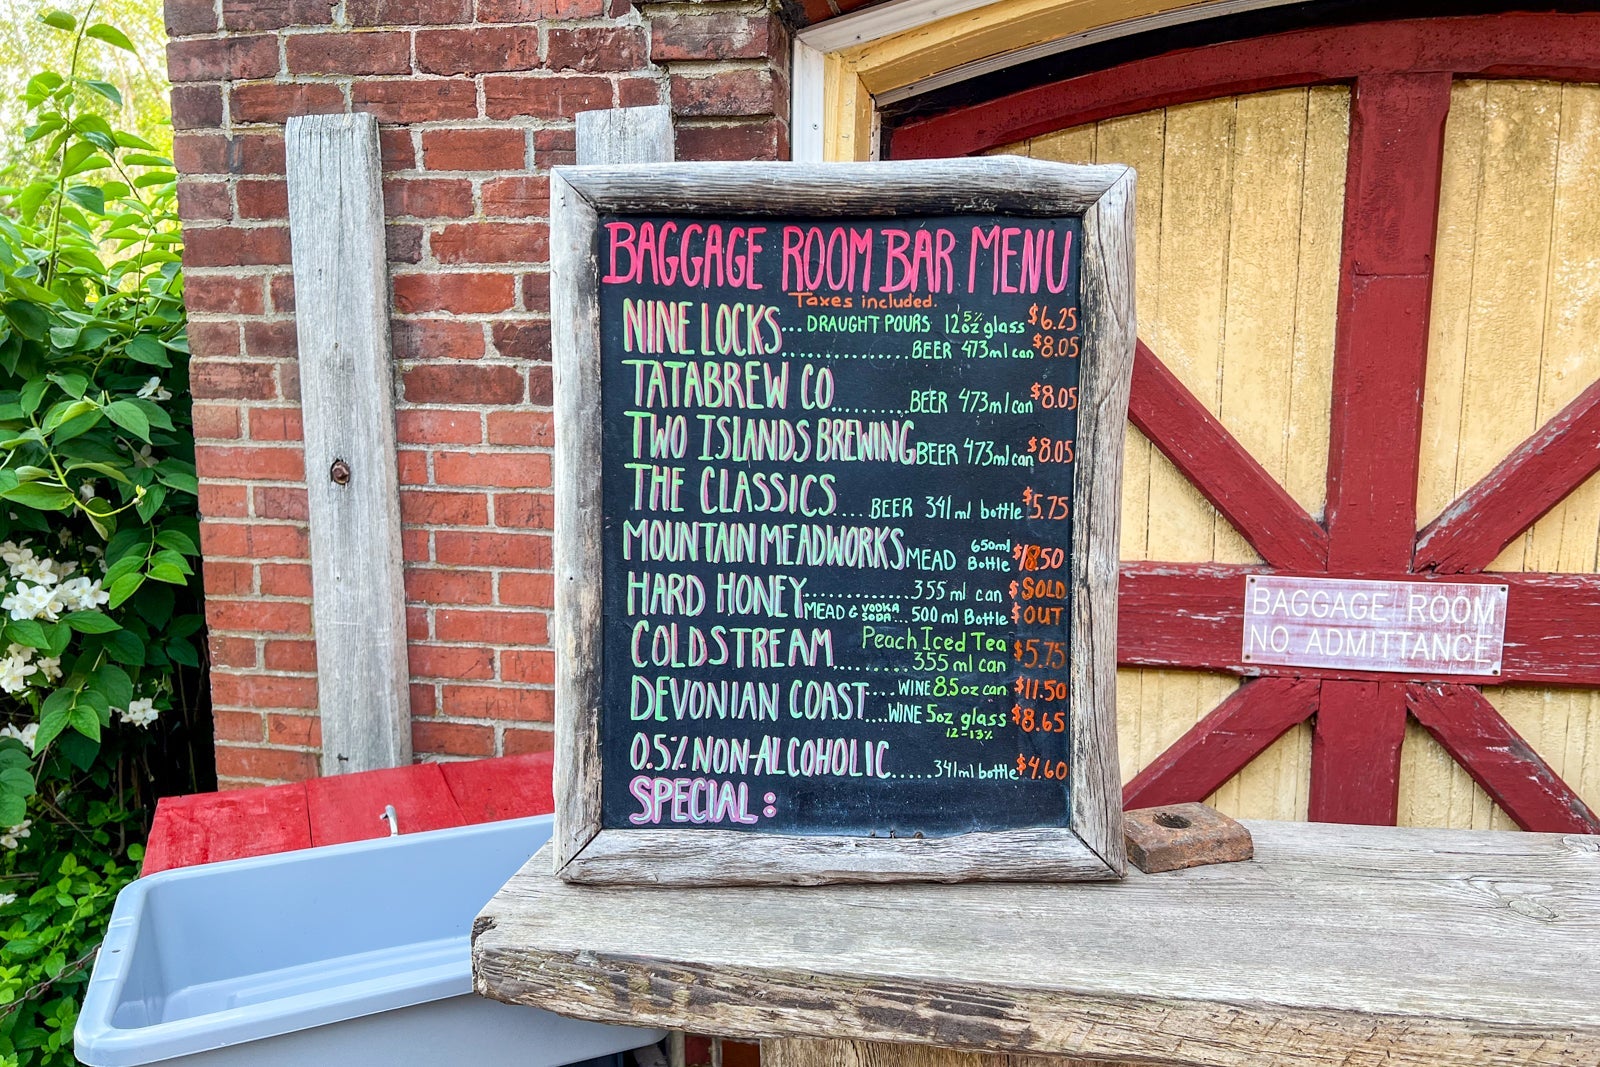 BAGGAGE ROOM BAR MENU
Taxes included.
NINE LOCKS... DRAUGHT POURS 5% 12oz glass $6.25
.............. BEER 473ml can $8.05
TATABREW CO......... BEER 473ml can $8.05
TWO ISLANDS BREWING BEER 473ml can $8.05
THE CLASSICS.... BEER 341ml bottle $5.75
MOUNTAIN MEADWORKS MEAD 650ml Bottle $18.50
HARD HONEY............ 355 ml can $ SOLD
MEAD & VODKA SODA... 500 ml Bottle $ OUT
COLDSTREAM Peach Iced Tea
........ 355 ml can $5.75
DEVONIAN COAST.... WINE 8.5oz can $11.50
.... WINE 5oz glass $8.65
12-13%
0.5% NON-ALCOHOLIC..... 341ml bottle $4.60
SPECIAL:
BAGGAGE ROOM
NO ADMITTANCE